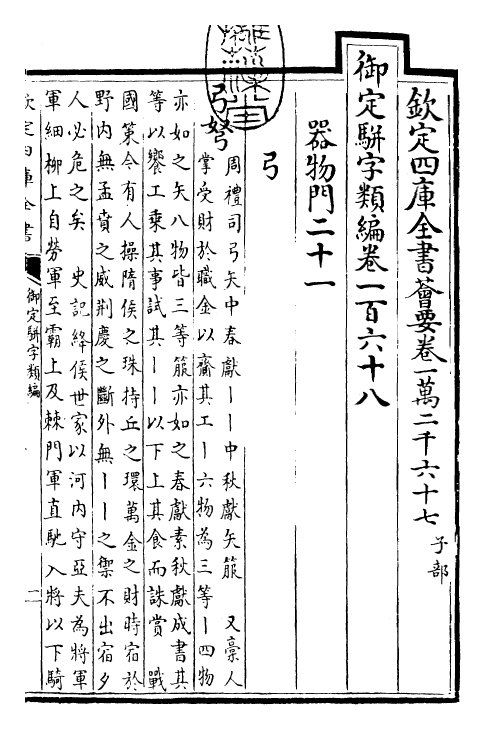 欽定四庫全書薈要卷一萬二千六十七子部
御定駢字類編卷一百六十八
器物門二十一
弓
弓弩
周禮司弓矢中春獻丨丨中秋獻矢箙　又槀人
掌受財於職金以齎其工丨六物為三等丨四物
亦如之矢八物皆三等箙亦如之春獻素秋獻成書其
等以饗工乘其事試其丨丨以下上其食而誅賞　戰
國策今有人操隋侯之珠持丘之環萬金之財時宿於
野内無孟賁之威荆慶之斷外無丨丨之禦不出宿夕
人必危之矣　史記絳侯世家以河内守亞夫為將軍
軍細柳上自勞軍至霸上及棘門軍直馳入將以下騎
欽定四庫全書
御定駢字類編